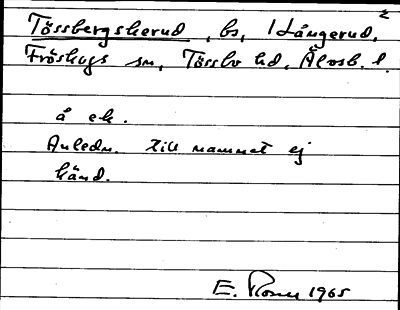 2
Tössbergskerud, bs, 1 Långerud,
Fröskogs sn, Tössbo hd, Älvsb. l.
å ek.
Anledn. till namnet ej
känd.
E. 1965